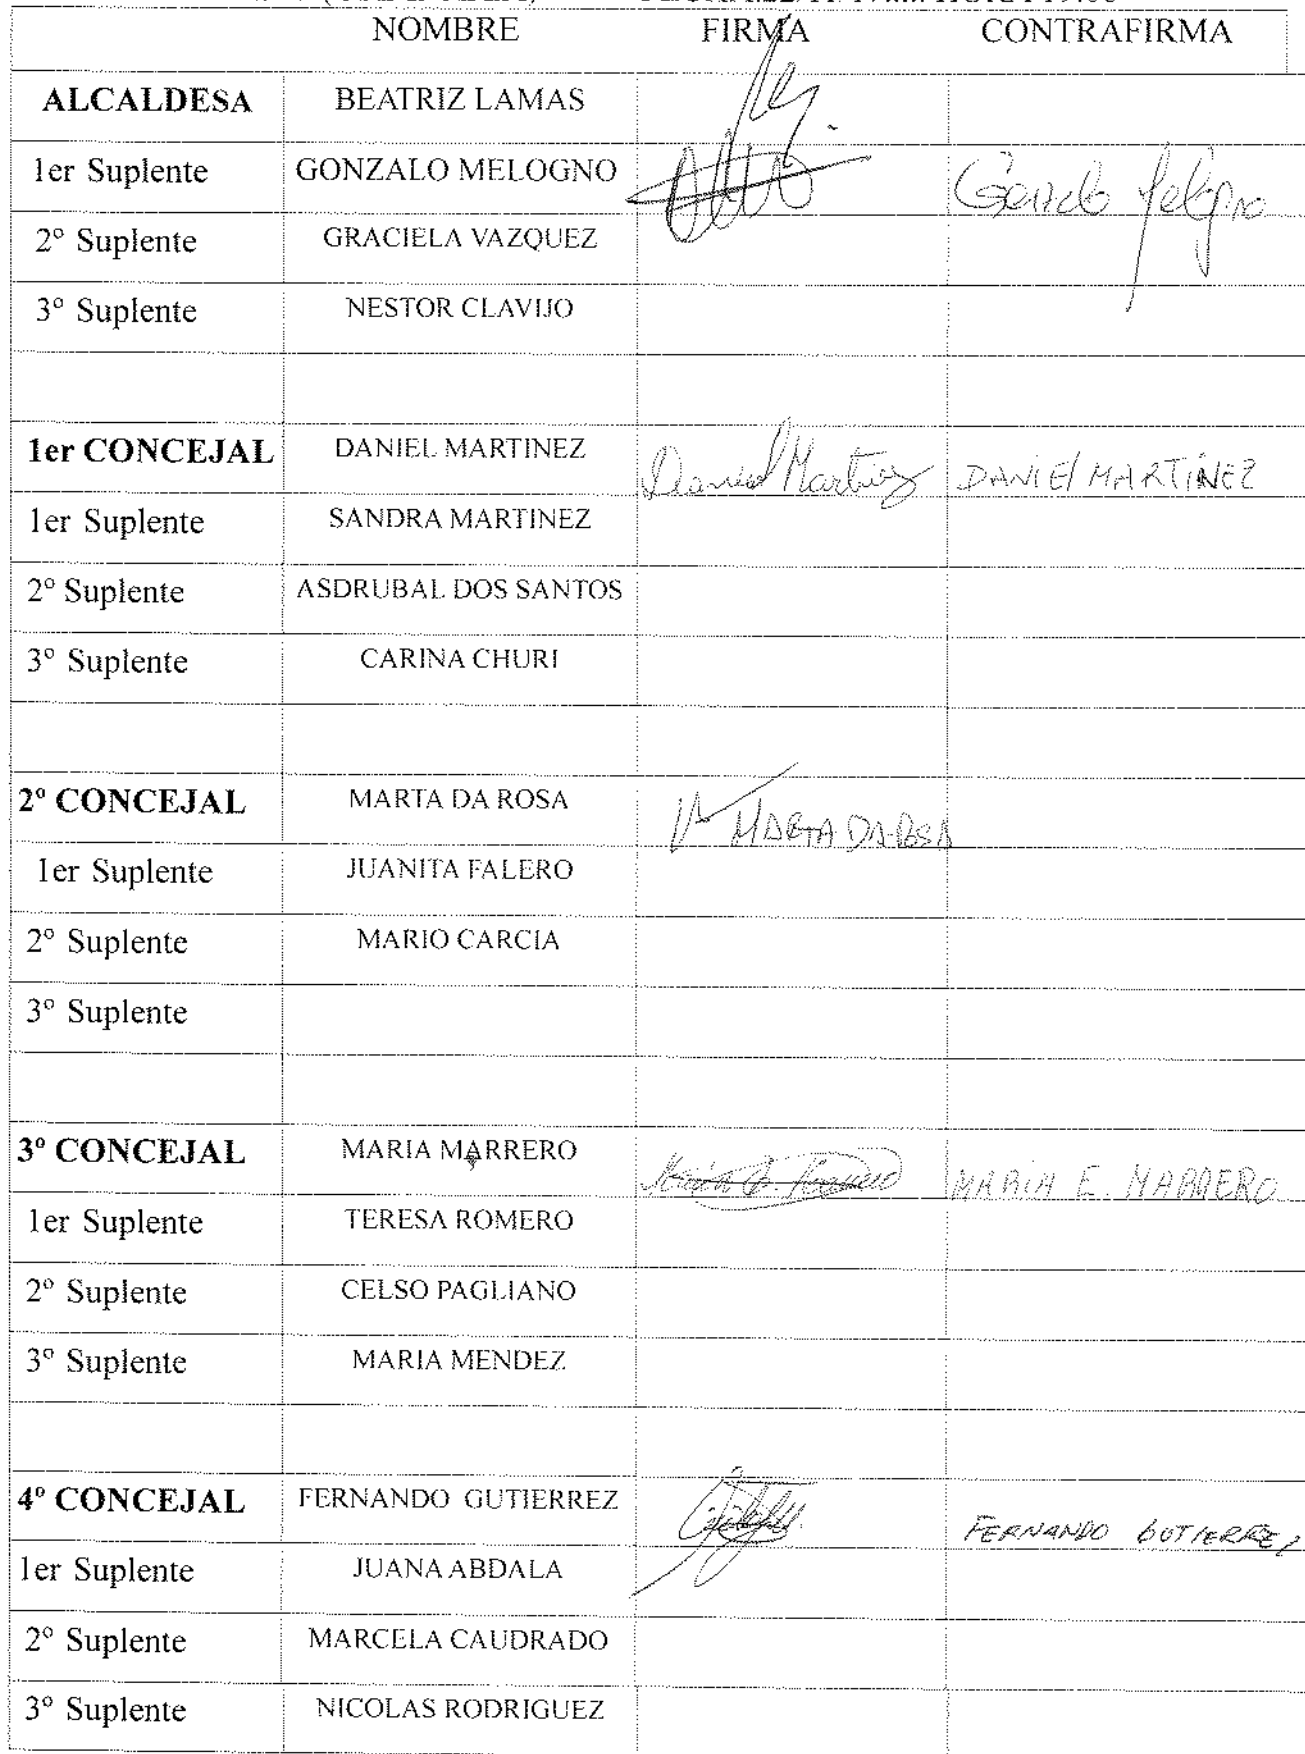 NOMBRE FIRMA CONTRAFIRMA
ALCALDESA BEATRIZ LAMAS
1er Suplente GONZALO MELOGNO
2º Suplente GRACIELA VAZQUEZ
3º Suplente NESTOR CLAVIJO
1er CONCEJAL DANIEL MARTINEZ Daniel Martinez DANIEl MARTÍNEZ
1er Suplente SANDRA MARTINEZ
2º Suplente ASDRUBAL DOS SANTOS
3º Suplente CARINA CHURI
2º CONCEJAL MARTA DA ROSA MARTA DA ROSA
1er Suplente JUANITA FALERO
2º Suplente MARIO CARCIA
3º Suplente
3º CONCEJAL MARIA MARRERO MARIA E. MARRERO
1er Suplente TERESA ROMERO
2º Suplente CELSO PAGLIANO
3º Suplente MARIA MENDEZ
4º CONCEJAL FERNANDO GUTIERREZ FERNANDO GUTIERREZ
1er Suplente JUANA ABDALA
2º Suplente MARCELA CAUDRADO
3º Suplente NICOLAS RODRIGUEZ